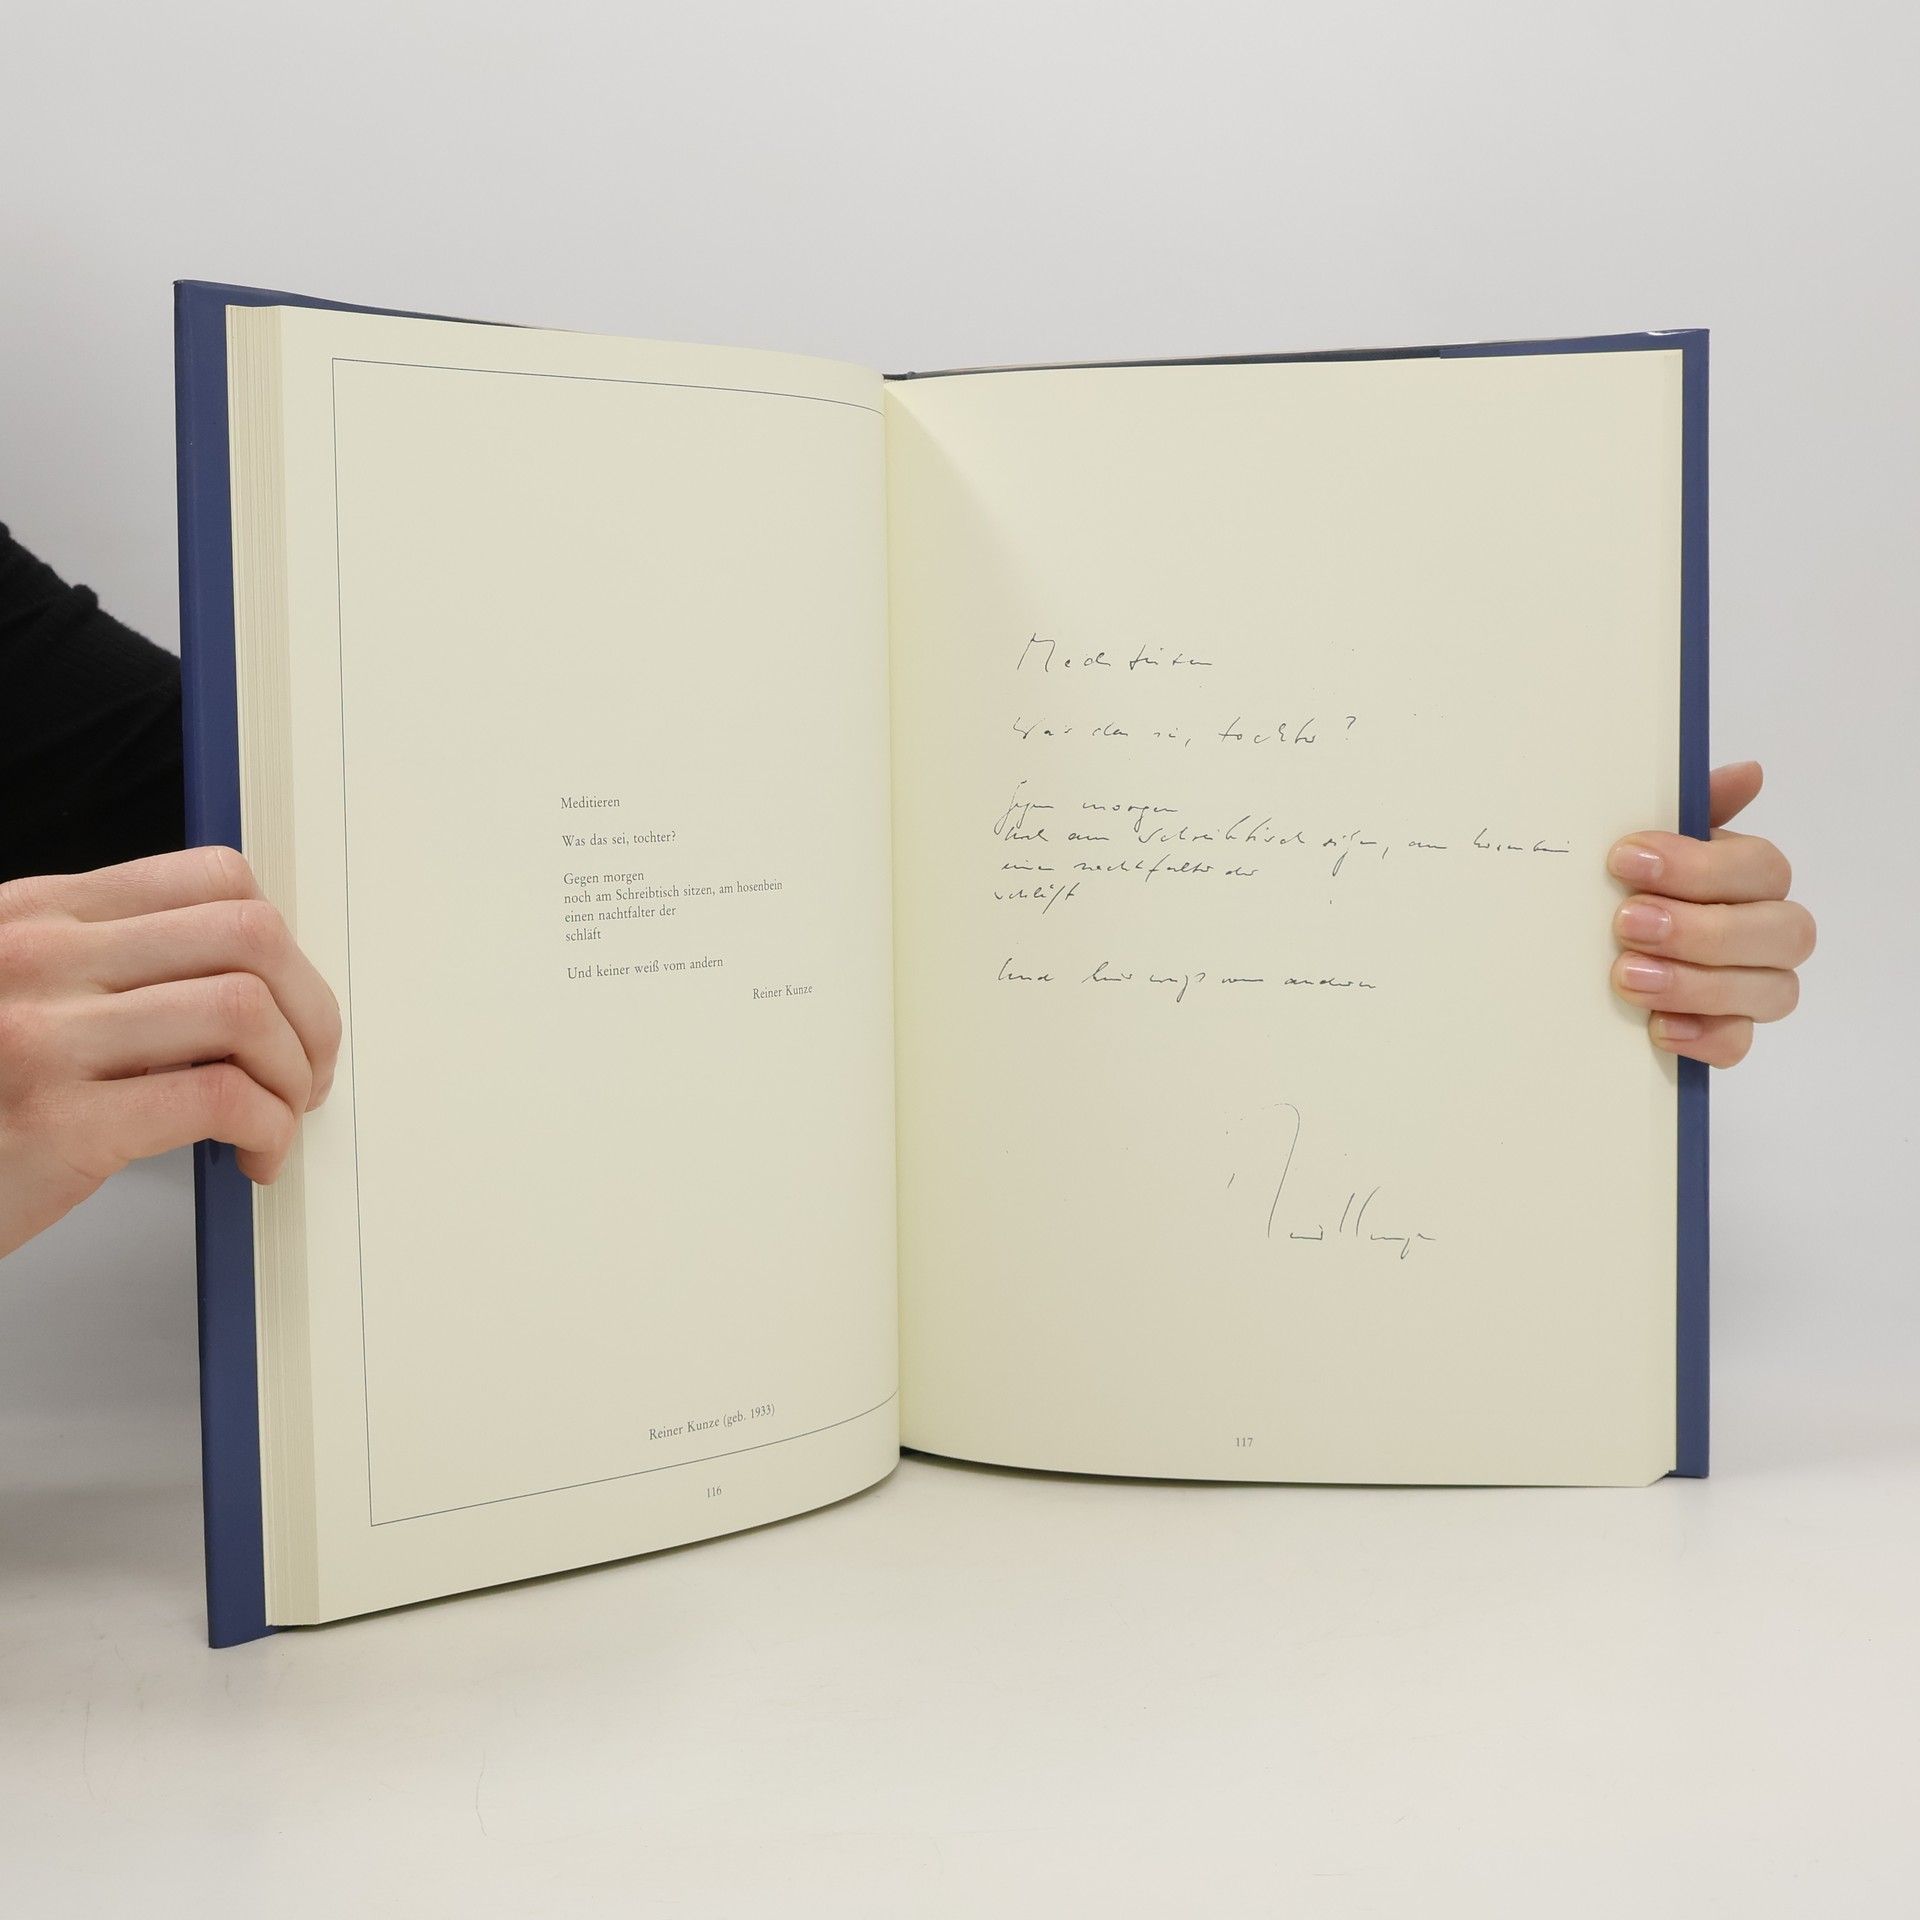 Meditieren
Was das sei, tochter?
Gegen morgen
noch am Schreibtisch sitzen, am hosenbein
einen nachtfalter der
schläft
Und keiner weiß vom andern
Reiner Kunze
Reiner Kunze (geb. 1933)
116
Meditieren
Was das sei, tochter?
Gegen morgen
noch am Schreibtisch sitzen, am hosenbein
einen nachtfalter der
schläft
Und keiner weiß vom andern
Reiner Kunze
117